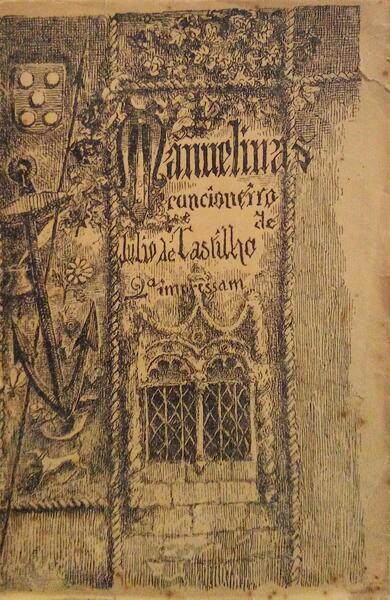 Manuelinas
cancioneiro
de
Julio de Castilho
2ª impressam